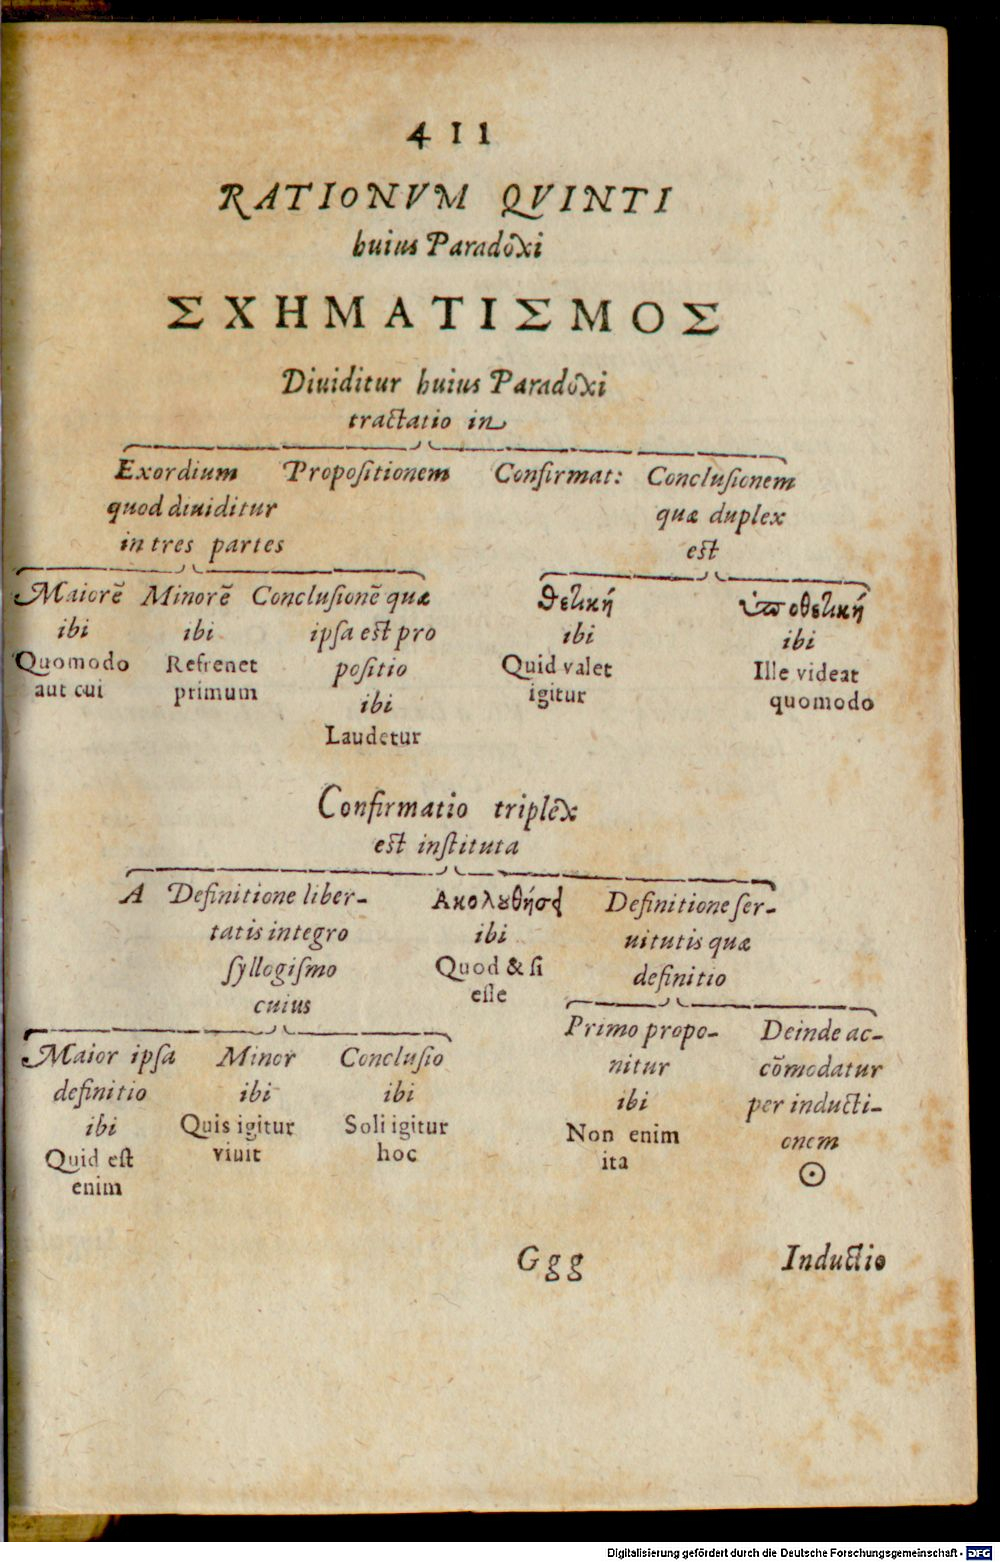 411
RATIONVM QVINTI
huius Paradoxi
ΣΧΗΜΑΤΙΣΜΟΣ
Diuiditur huius Paradoxi
tractatio in
Exordium Propoſitionem Confirmat: Concluſionem
quod diuiditur quæ duplex
in tres partes est
Maiorē Minorē Concluſionē quæ θετικὴ ὑποθετικὴ
ibi ibi ipſa est pro ibi ibi
Quomodo Refrenet poſitio Quid valet Ille videat
aut cui primum ibi igitur quomodo
Laudetur
Confirmatio triplex
est inſtituta
A Definitione liber- Ακολȣθήσει Definitione ſer-
tatis integro ibi uitutis quæ
ſyllogiſmo Quod & ſi definitio
cuius eſſe
Maior ipſa Minor Concluſio Primo propo- Deinde ac-
definitio ibi ibi nitur cōmodatur
ibi Quis igitur Soli igitur ibi per inducti-
Quid eſt viuit hoc Non enim onem
enim ita ☉
Ggg Inductio
Digitalisierung gefördert durch die Deutsche Forschungsgemeinschaft - DFG